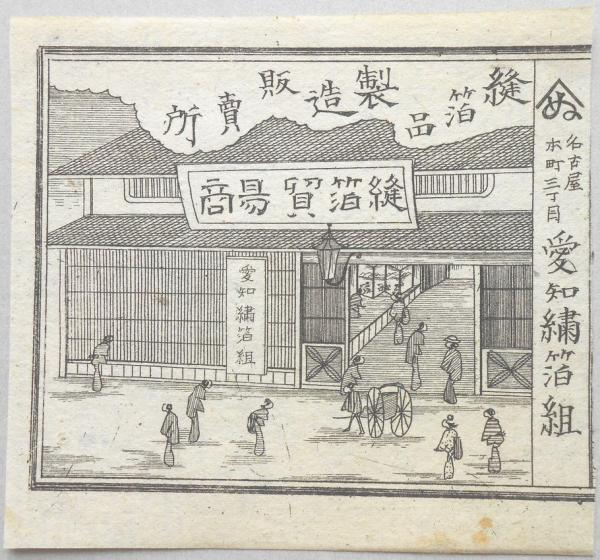 ぬ
名古屋
本町三丁目
愛知繡箔組
縫箔品製造販賣所
縫箔貿易商
愛知繡箔組